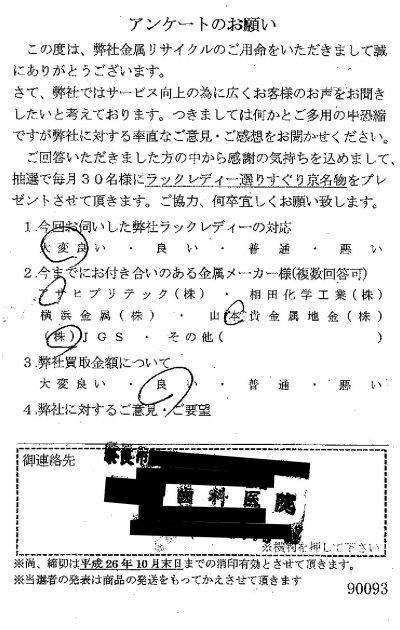 アンケートのお願い
この度は、弊社金属リサイクルのご用命をいただきまして誠
にありがとうございます。
さて、弊社ではサービス向上の為に広くお客様のお声をお聞き
したいと考えております。つきましては何かとご多用の中恐縮
ですが弊社に対する率直なご意見・ご感想をお聞かせください。
ご回答いただきました方の中から感謝の気持ちを込めまして、
抽選で毎月30名様にラックレディー選りすぐり京名物をプレ
ゼントさせて頂きます。ご協力、何卒宜しくお願い致します。
1.今回お伺いした弊社ラックレディーの対応
大変良い・良い・普通・悪い
2.今までにお付き合いのある金属メーカー様(複数回答可)
アサヒプリテック(株)・相田化学工業(株)
横浜金属(株)・山本貴金属地金(株)
(株)JGS・その他( )
3.弊社買取金額について
大変良い・良い・普通・悪い
4.弊社に対するご意見・ご要望
御連絡先
奈良市
歯科医院
※機関を押して下さい
※尚、締切は平成26年10月末日までの消印有効とさせて頂きます。
※当選者の発表は商品の発送をもってかえさせて頂きます
90093